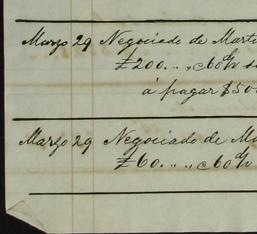 Março 29 Negociado de Mart
£200..., c 60 d/v
á pagar $50
Março 29 Negociado de Ma
£60..., c 60 d/v